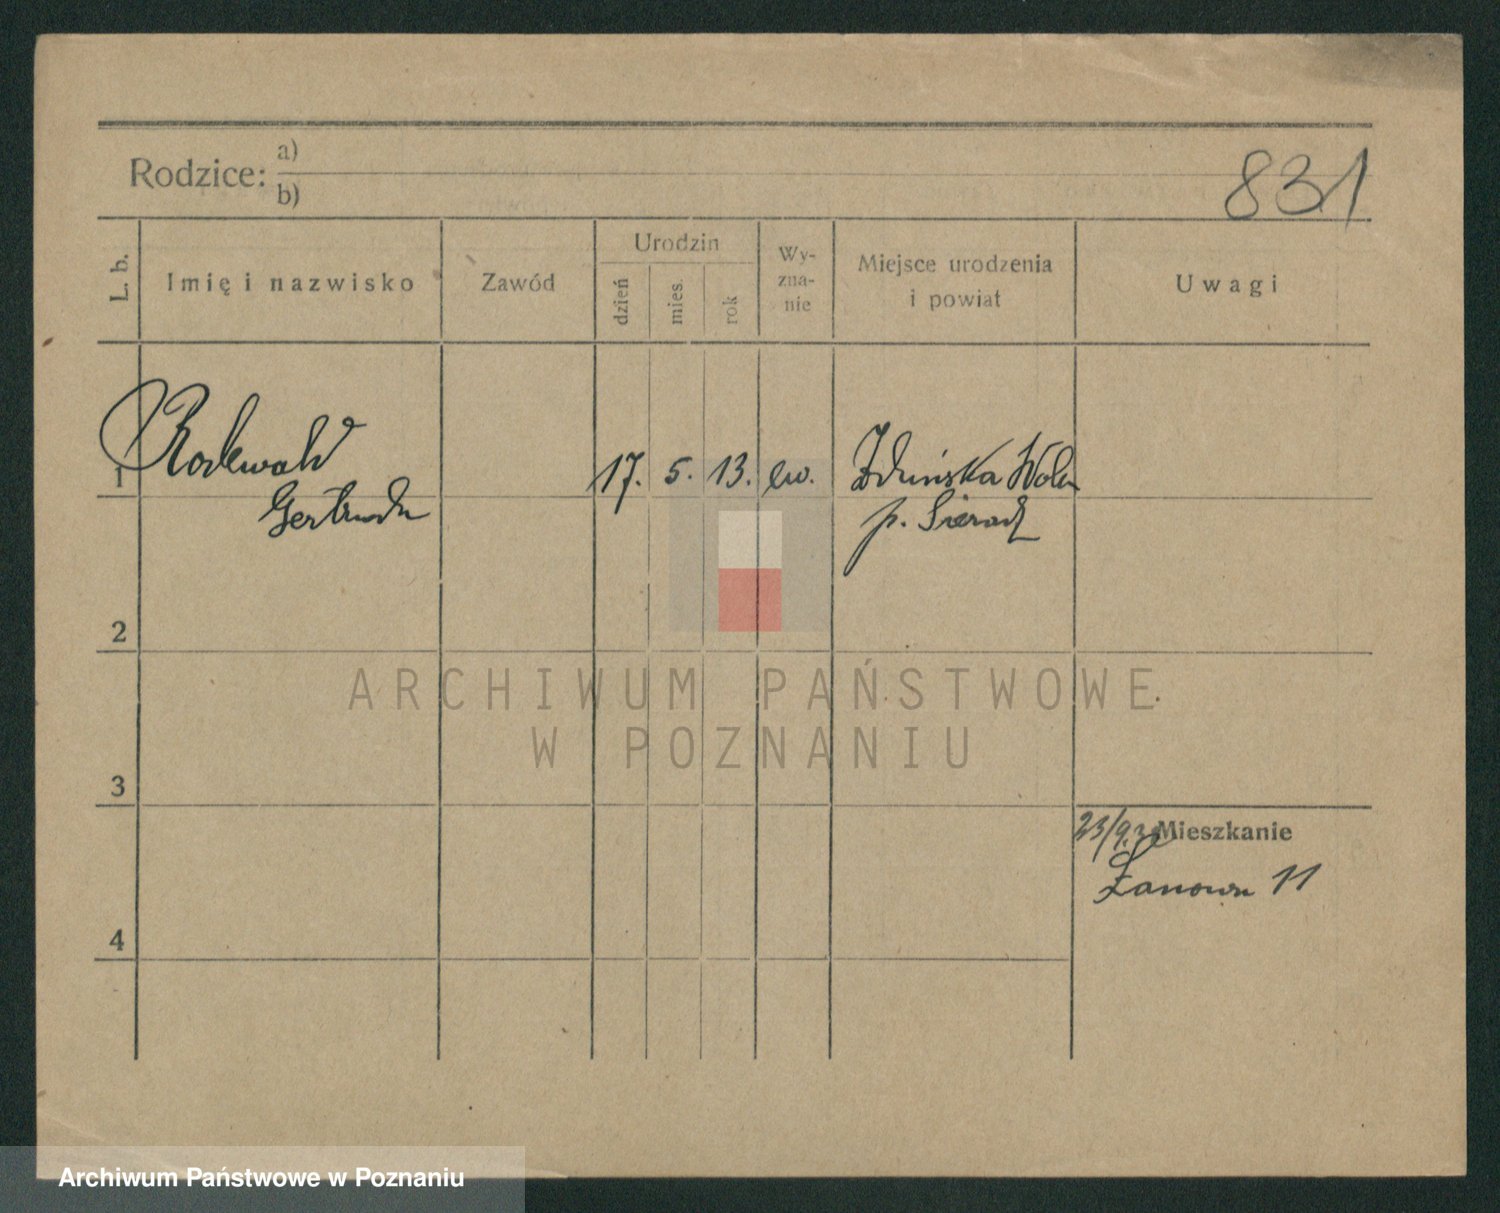 Rodzice: a)
b)
831
L. b.
Imię i nazwisko
Zawód
Urodzin
dzień
mies.
rok
Wy-
zna-
nie
Miejsce urodzenia
i powiat
Uwagi
1
Rodewald
Gertruda
17. 5. 13. ew.
Zduńska Wola
p. Sieradz
2
3
4
23/9.
Mieszkanie
Łanowa 11
ARCHIWUM PAŃSTWOWE
W POZNANIU
Archiwum Państwowe w Poznaniu